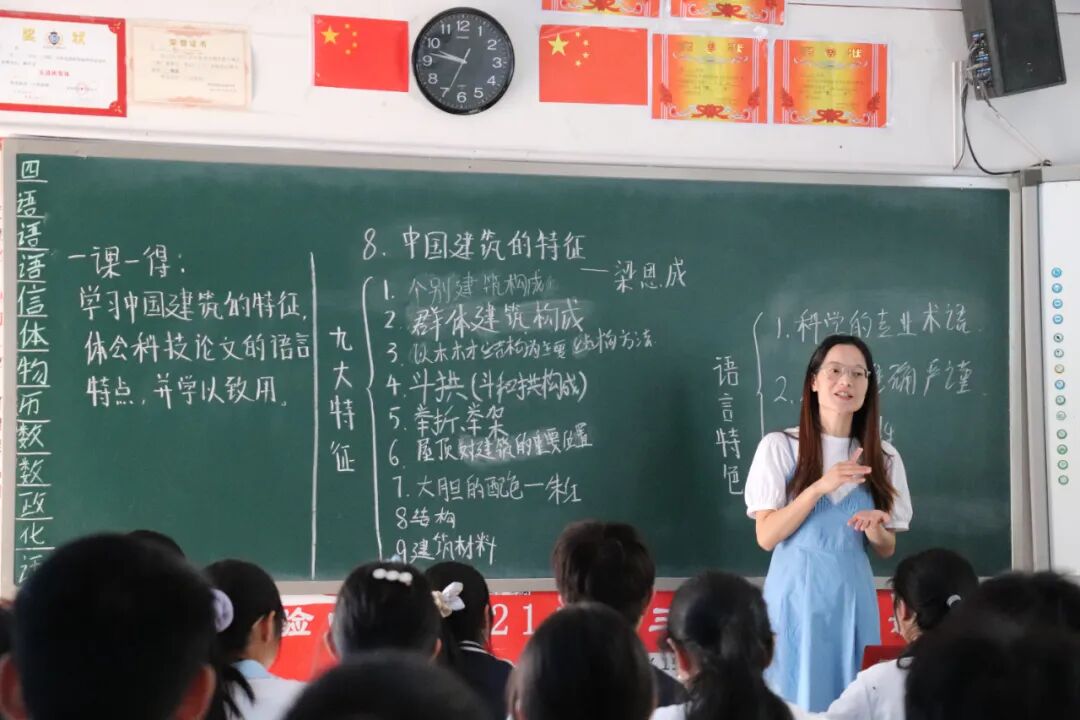 奖状
荣誉证书
12
1
2
3
4
5
6
7
8
9
10
11
四
语
语
语
信
体
物
历
数
数
政
化
一课一得:
学习中国建筑的特征,
体会科技论文的语言
特点,并学以致用。
8. 中国建筑的特征
——梁思成
九大特征
1. 个别建筑构成
2. 群体建筑构成
3. 以木材结构为主要结构方法
4. 斗拱(斗和拱构成)
5. 举折,举架
6. 屋顶对建筑的重要位置
7. 大胆的配色—朱红
8 结构
9 建筑材料
语言特色
1. 科学的专业术语
2.
确严谨
性
验
21
三